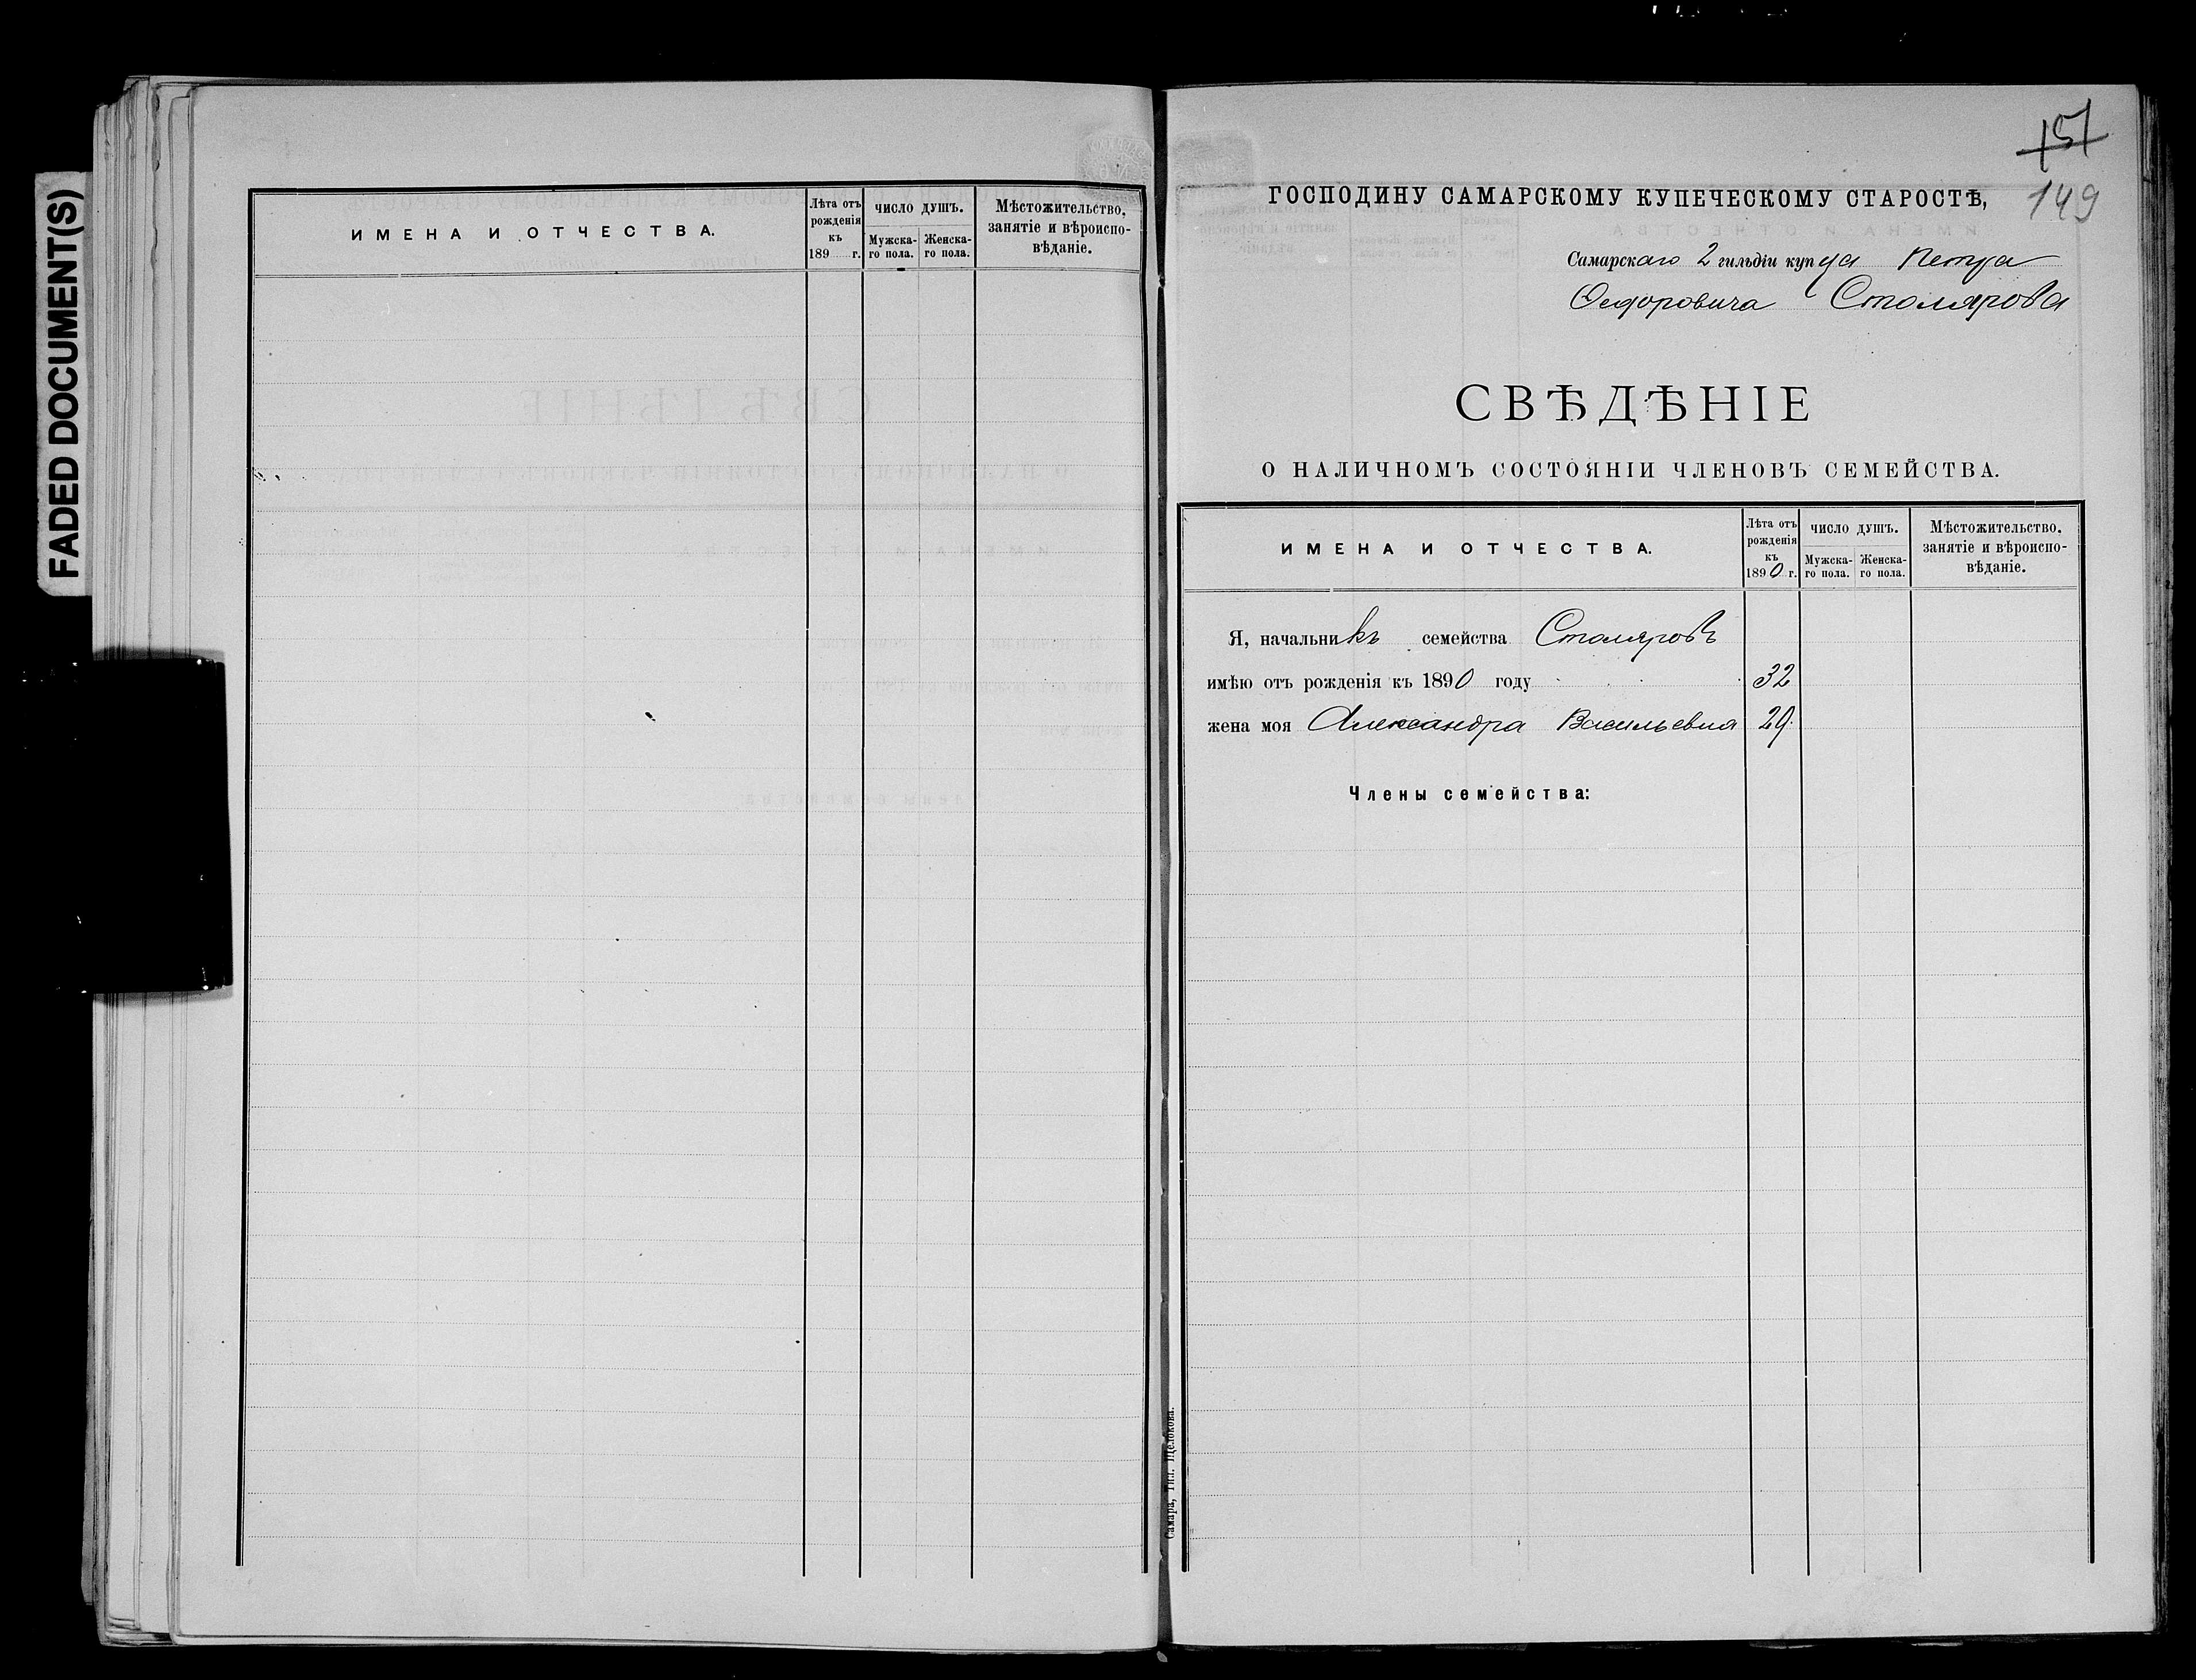 FADED DOCUMENT(S)
ИМЕНА И ОТЧЕСТВА.
Лѣта отъ рожденія къ 189 г.
ЧИСЛО ДУШЪ.
Мужска-го пола.
Женска-го пола.
Мѣстожительство, занятіе и вѣроиспо-вѣданіе.
151
149
ГОСПОДИНУ САМАРСКОМУ КУПЕЧЕСКОМУ СТАРОСТѢ,
Самарскаго 2 гильдіи купца Петра
Ѳедоровича Столярова
СВѢДѢНІЕ
О НАЛИЧНОМЪ СОСТОЯНІИ ЧЛЕНОВЪ СЕМЕЙСТВА.
ИМЕНА И ОТЧЕСТВА.
Лѣта отъ рожденія къ 1890 г.
ЧИСЛО ДУШЪ.
Мужска-го пола.
Женска-го пола.
Мѣстожительство, занятіе и вѣроиспо-вѣданіе.
Я, начальникъ семейства Столяровъ
имѣю отъ рожденія къ 1890 году 32
жена моя Александра Васильевна 29.
Члены семейства:
Самара, Тип. Щелокова.